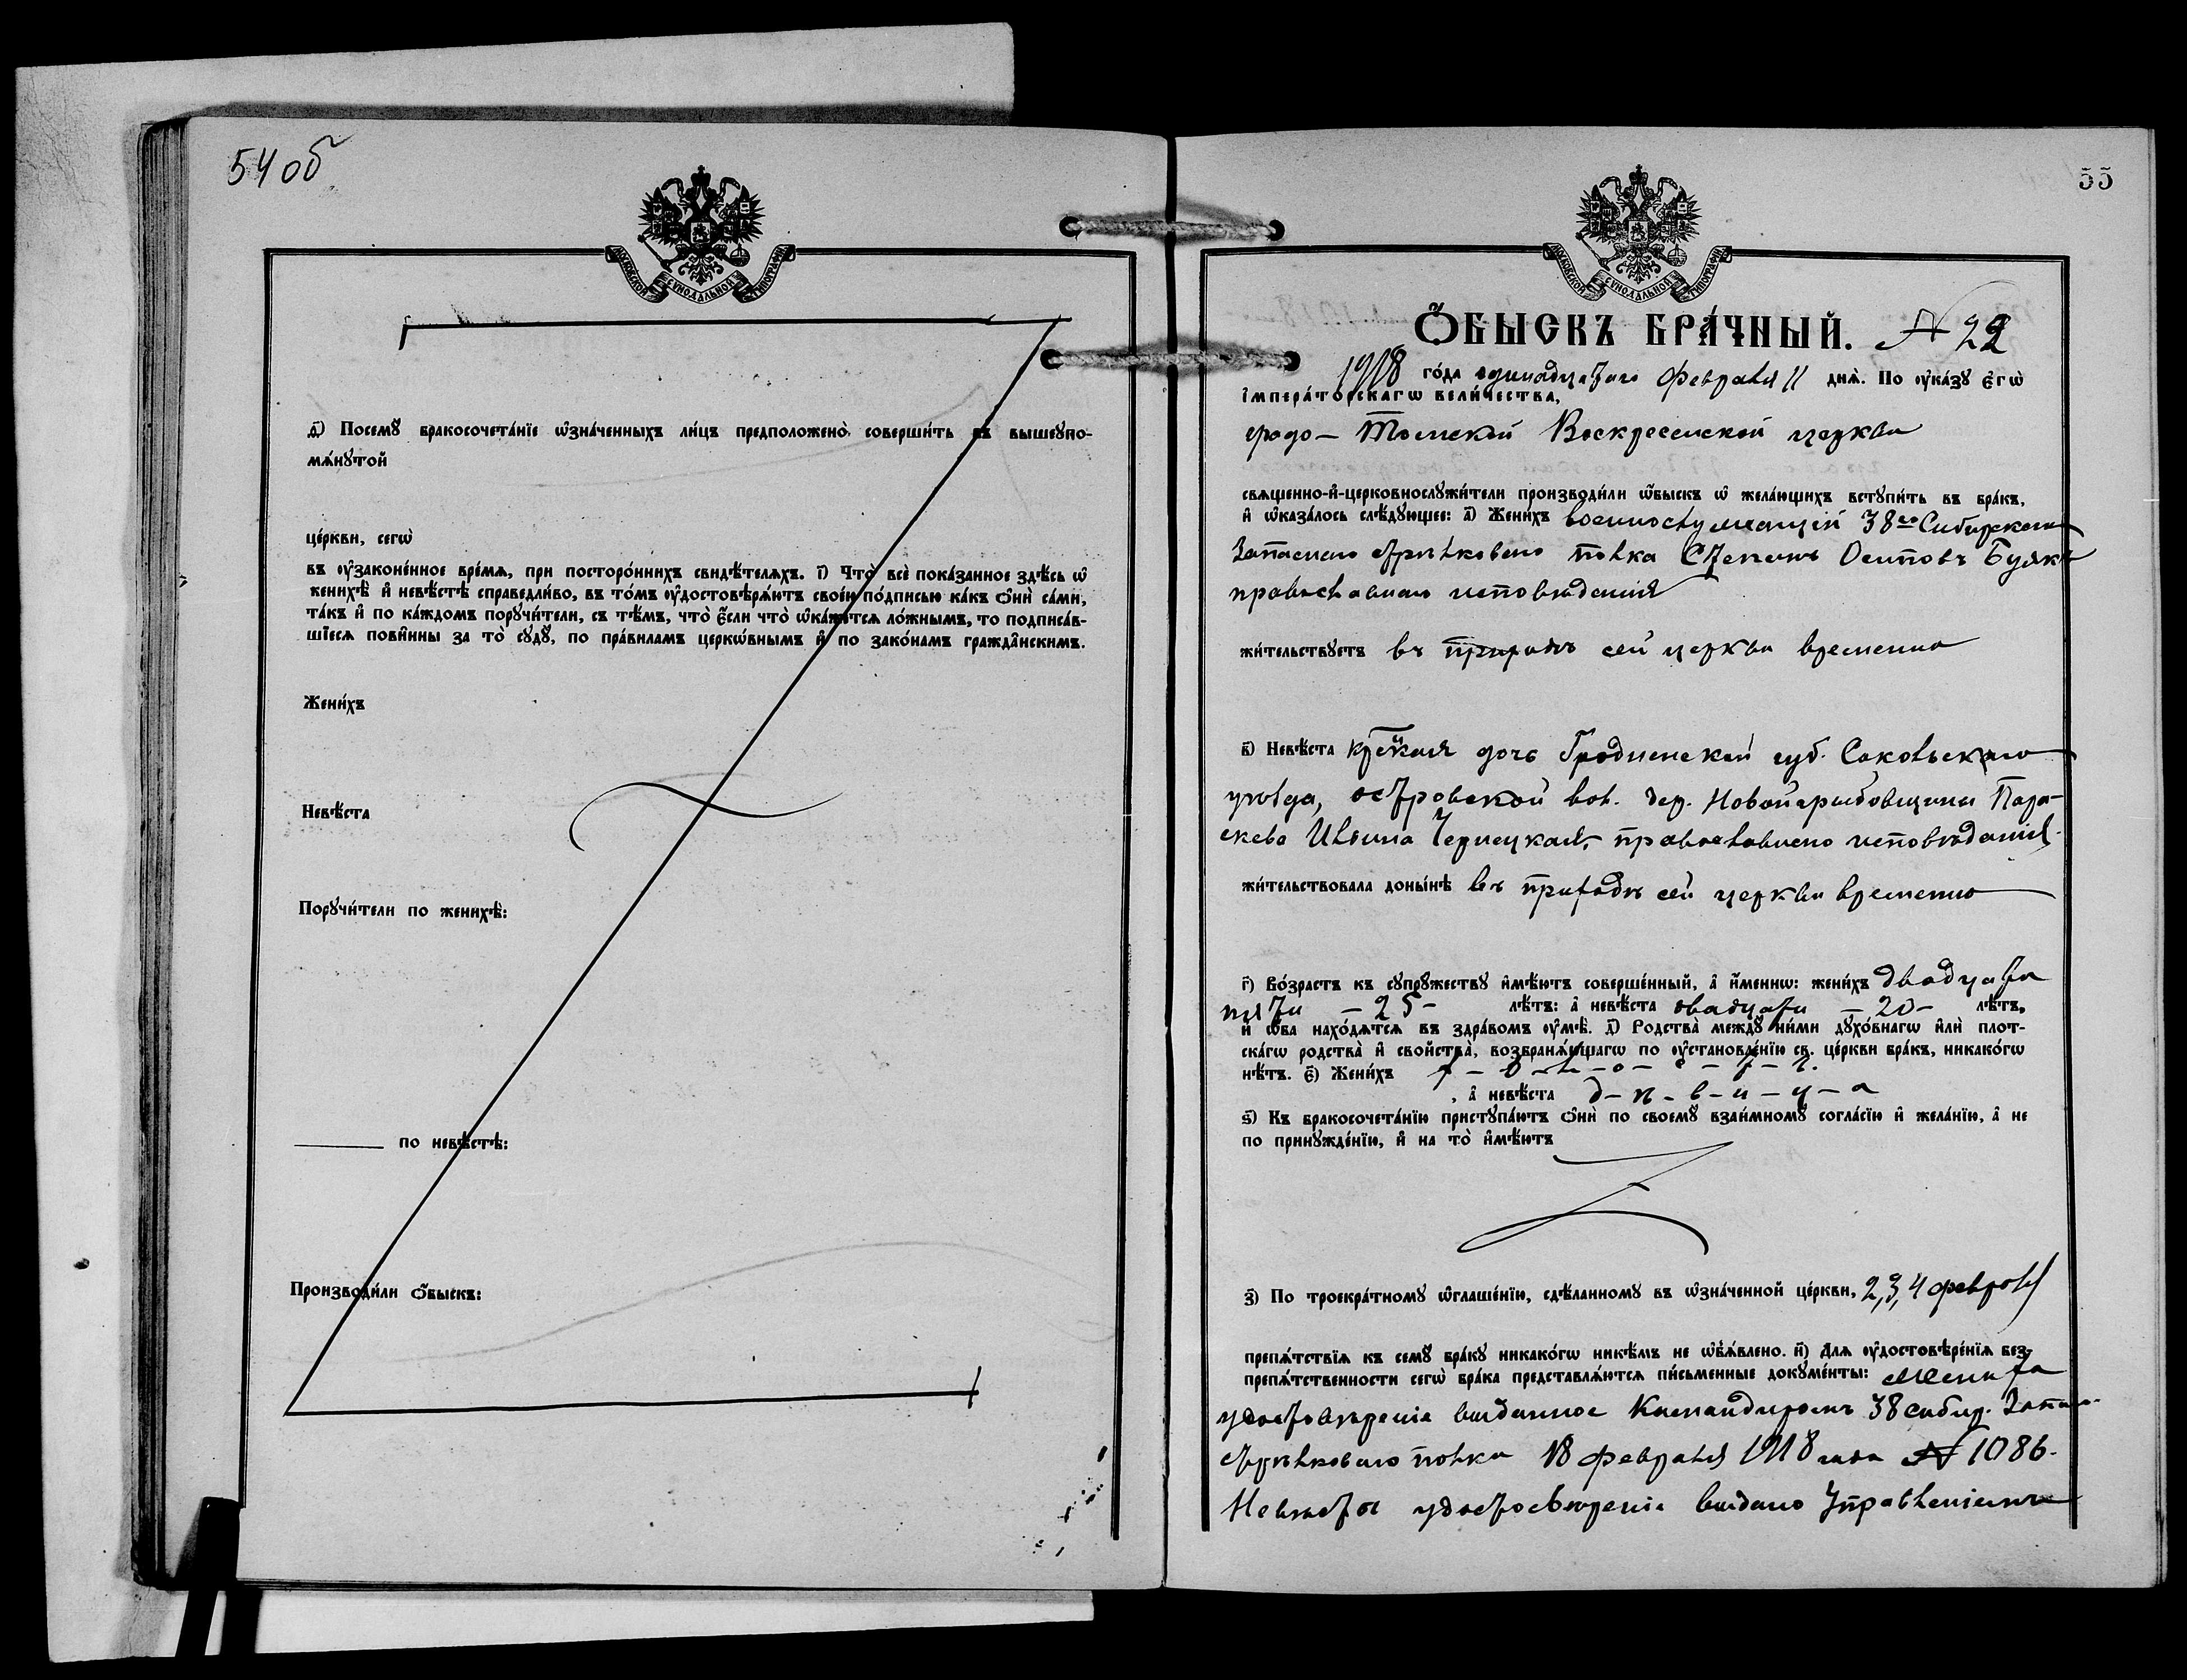 54 об
МОСКОВСКОЙ СѴНОДАЛЬНОЙ ТИПОГРАФІИ
д҃) Посемꙋ̀ бракосочета́нїе ѡ҆зна́ченныхъ ли́цъ предположено̀ соверши́ть въ вышеꙋпо-
мѧ́нꙋтой
це́ркви, сегѡ̀
въ ᲂу҆зако́ненное вре́мѧ, при посторо́ннихъ свидѣ́телѧхъ. і҃) Что̀ всѐ пока́занное здѣ́сь ѡ҆
женихѣ̀ и҆ невѣ́стѣ справедли́во, въ то́мъ ᲂу҆достовѣрѧ́ютъ свое́ю по́дписью ка́къ ѻ҆нѝ са́ми,
та́къ и҆ по ка́ждомъ порꙋчи́тели, съ тѣ́мъ, что̀ є҆́сли что̀ ѡ҆ка́жетсѧ ло́жнымъ, то подписа́в-
шїесѧ пови́нны за то̀ сꙋдꙋ̀, по пра́виламъ церкѡ́внымъ и҆ по зако́намъ гражда̑нскимъ.
Жени́хъ
Невѣ́ста
Порꙋчи́тели по женихѣ̀:
по невѣ́стѣ:
Производи́ли ѻ҆́быскъ:
55
МОСКОВСКОЙ СѴНОДАЛЬНОЙ ТИПОГРАФІИ
Ѻ҆́БЫСКЪ БРА́ЧНЫЙ. № 22
1918 го́да одинадцатаго февраля 11 днѧ̀. По ᲂу҆ка́зꙋ є҆гѡ̀
і҆мпера́торскагѡ вели́чества,
градо-Томской Воскресенской церкви
свѧще́нно-и҆-церковнослꙋжи́тели производи́ли ѡ҆́быскъ ѡ҆ жела́ющихъ встꙋпи́ть въ бра́къ,
и҆ ѡ҆каза́лось слѣ́дꙋющее: а҃) Жени́хъ военнослужащій 38го Сибирскаго
Запаснаго стрѣлковаго полка Степанъ Осиповъ
православнаго исповѣданія
жи́тельствꙋетъ въ приходѣ сей церкви временно
в҃) Невѣ́ста крес̃кая дочь Гродненской губ. Сокольскаго
уѣзда, островской вол. дер. Пара-
скева Ильина Чернецкая, православнаго исповѣданія
жи́тельствовала доны́нѣ въ приходѣ сей церкви временно
г҃) Во́зрастъ къ сꙋпрꙋ́жествꙋ и҆мѣ́ютъ соверше́нный, а҆ и҆́меннѡ: жени́хъ двадцати
пяти - 25 - лѣ́тъ: а҆ невѣ́ста двадцати - 20 - лѣ́тъ,
и҆ ѡ҆́ба нахо́дѧтсѧ въ здра́вомъ ᲂу҆мѣ̀. д҃) Родства̀ междꙋ̀ ни́ми дꙋхо́внагѡ и҆лѝ плот-
ска́гѡ родства̀ и҆ сво́йства, возбранѧ́ющагѡ по ᲂу҆становле́нїю св. це́ркви бра́къ, никако́гѡ
нѣ́тъ. є҃) Жени́хъ х-о-л-о-с-т-ъ.
, а҆ невѣ́ста д-ѣ-в-и-ц-а
ѕ҃) Къ бракосочета́нїю пристꙋпа́ютъ ѻ҆нѝ по своемꙋ̀ взаи́мномꙋ согла́сїю и҆ жела́нїю, а҆ не
по принꙋжде́нїю, и҆ на то̀ и҆мѣ́ютъ
з҃) По троекра́тномꙋ ѡ҆глаше́нїю, сдѣ́ланномꙋ въ ѡ҆зна́ченной це́ркви, 2, 3, 4 февраля
препѧ́тствїѧ къ семꙋ̀ бра́кꙋ никако́гѡ никѣ́мъ не ѡ҆б̾ѧ́влено. и҃) Длѧ ᲂу҆достовѣре́нїѧ без-
препѧ́тственности сегѡ̀ бра́ка представлѧ́ютсѧ пи́сьменные докꙋме́нты: жениха
удостовѣреніе выданное Командиромъ 38 сибир. запас.
стрѣлковаго полка 18 февраля 1918 года № 1086.
Невѣсты удостовѣреніе выдано Управленіемъ